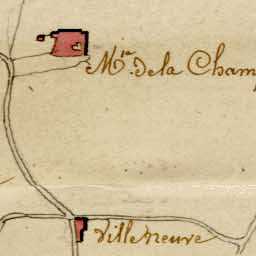 Min de la Cham
Villeneuve